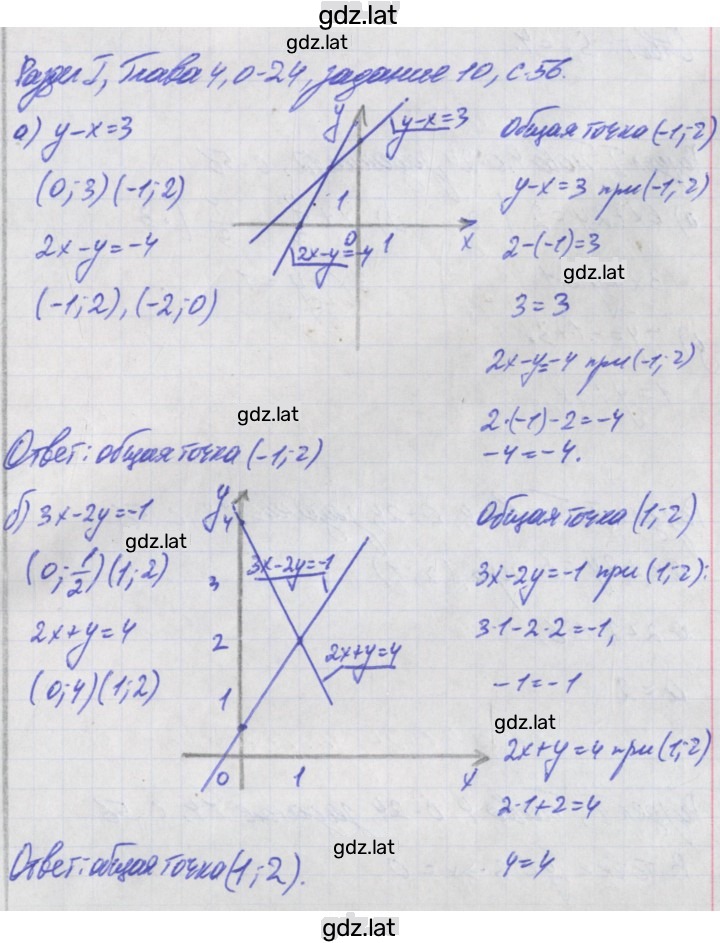 gdz.lat
gdz.lat
Раздел I, Глава 4, О-24, задание 10, с.56.
а) y-x=3
(0; 3) (-1; 2)
2x-y=-4
(-1; 2), (-2; 0)
y
y-x=3
1
0
1
x
2x-y=-4
Общая точка (-1; 2)
y-x=3 при (-1; 2)
2-(-1)=3
gdz.lat
3=3
2x-y=-4 при (-1; 2)
2·(-1)-2=-4
-4=-4.
gdz.lat
Ответ: общая точка (-1; 2)
б) 3x-2y=-1
gdz.lat
(0; 1/2) (1; 2)
2x+y=4
(0; 4) (1; 2)
y
4
3
2
1
0
1
x
3x-2y=-1
2x+y=4
Общая точка (1; 2)
3x-2y=-1 при (1; 2):
3·1-2·2=-1,
-1=-1
gdz.lat
2x+y=4 при (1; 2)
2·1+2=4
4=4
gdz.lat
Ответ: общая точка (1; 2).
gdz.lat